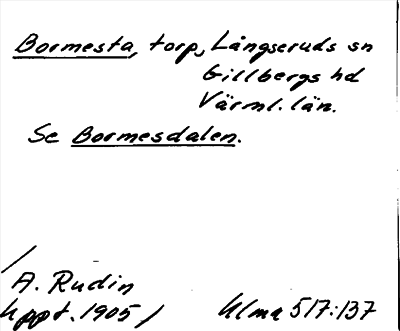 Bormesta, torp, Långseruds sn
Gillbergs hd
Värml. län.
Se Bormesdalen.
/
A. Rudin
Uppt. 1905 /
Ulma 517:137